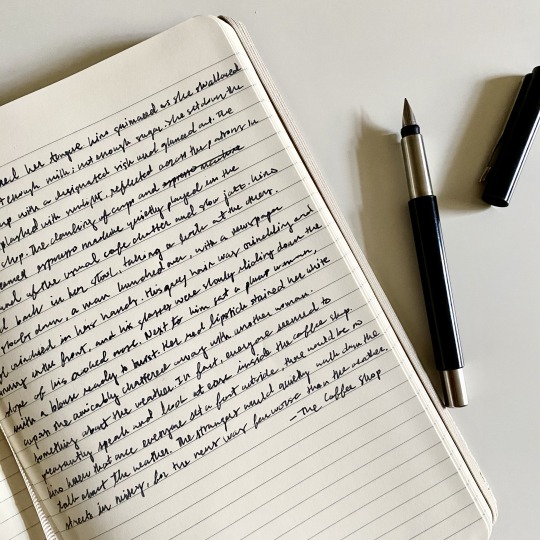 her tongue. Nina grimaced as she swallowed
enough milk; not enough sugar. She set down the
with a resignated sigh and glanced out. The
splashed with sunlight, reflected across the patrons in
shop. The clanking of cups and espresso machine
espresso machine quietly played in the
of the usual cafe chatter and slow jazz. Nina
back in her stool, taking a look at the others.
stools down, a man hunched over, with a newspaper
in his hands. His grey hair was crinkling and
in the front, and his glasses were slowly sliding down the
slope of his crooked nose. Next to him sat a plump woman,
with a blouse ready to burst. Her red lipstick stained her white
as she amicably chattered away with another woman.
something about the weather. In fact, everyone seemed to
pleasantly speak and look at ease inside the coffee shop.
Nina knew that once everyone set a foot outside, there would be no
talk about the weather. The strangers would quietly walk down the
streets in misery, for the news was far worse than the weather.
-The Coffee Shop